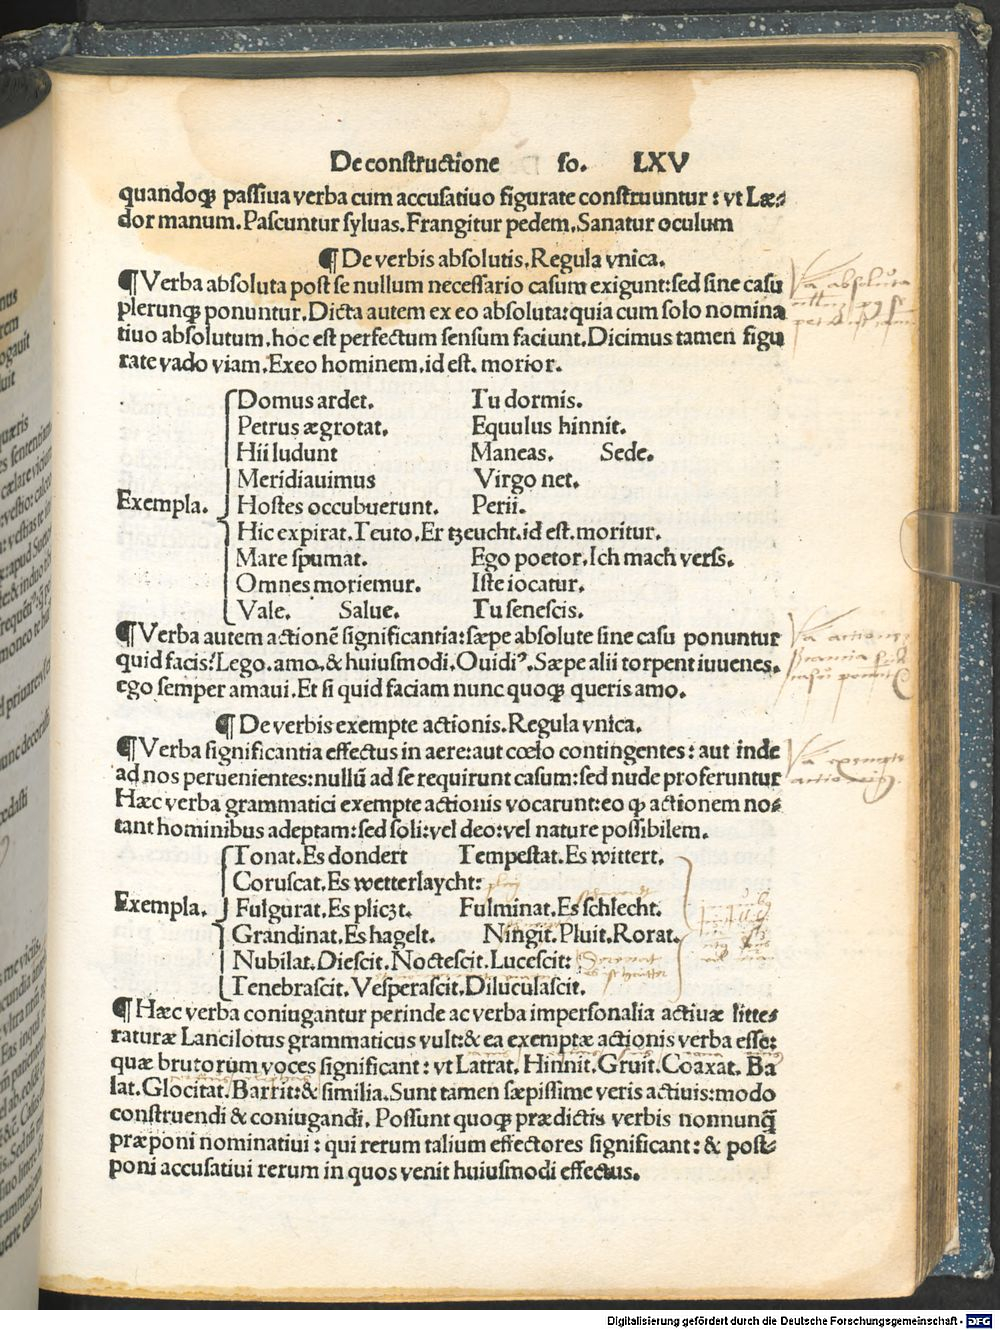 De constructione fo. LXV
quandoqꝫ passiua verba cum accusatiuo figurate construuntur : vt Læ⸗
dor manum. Pascuntur syluas. Frangitur pedem. Sanatur oculum
¶ De verbis absolutis. Regula vnica.
¶ Verba absoluta post se nullum necessario casum exigunt: sed sine casu
plerunqꝫ ponuntur. Dicta autem ex eo absoluta: quia cum solo nomina
tiuo absolutum, hoc est perfectum sensum faciunt. Dicimus tamen figu
rate vado viam. Exeo hominem. id est. morior.
Domus ardet. Tu dormis.
Petrus ægrotat. Equulus hinnit.
Hii ludunt Maneas. Sede.
Meridiauimus Virgo net.
Exempla. Hostes occubuerunt. Perii.
Hic expirat. Teuto. Er tzeucht. id est. moritur.
Mare spumat. Ego poetor. Ich mach verss.
Omnes moriemur. Iste iocatur.
Vale. Salue. Tu senescis.
¶ Verba autem actionē significantia: sæpe absolute sine casu ponuntur
quid facis? Lego. amo. & huiusmodi. Ouidiꝰ. Sæpe alii torpent iuuenes.
ego semper amaui. Et si quid faciam nunc quoqꝫ queris amo.
¶ De verbis exempte actionis. Regula vnica.
¶ Verba significantia effectus in aere: aut cœlo contingentes: aut inde
ad nos peruenientes: nullū ad se requirunt casum: sed nude proferuntur
Hæc verba grammatici exempte actionis vocarunt: eo ꝙ actionem no⸗
tant hominibus adeptam: sed soli: vel deo: vel nature possibilem.
Tonat. Es dondert Tempestat. Es wittert.
Coruscat. Es wetterlaycht:
Exempla. Fulgurat. Es pliczt. Fulminat. Es schlecht.
Grandinat. Es hagelt. Ningit. Pluit. Rorat.
Nubilat. Diescit. Noctescit. Lucescit:
Tenebrascit. Vesperascit. Diluculascit.
¶ Hæc verba coniugantur perinde ac verba impersonalia actiuæ litte⸗
raturæ Lancilotus grammaticus vult: & ea exemptæ actionis verba esse:
quæ brutorum voces significant: vt Latrat. Hinnit. Gruit. Coaxat. Ba
lat. Glocitat. Barrit: & similia. Sunt tamen sæpissime veris actiuis: modo
construendi & coniugandi. Possunt quoqꝫ prædictis verbis nonnunq̄
præponi nominatiui: qui rerum talium effectores significant: & post⸗
poni accusatiui rerum in quos venit huiusmodi effectus.
Digitalisierung gefördert durch die Deutsche Forschungsgemeinschaft - DFG